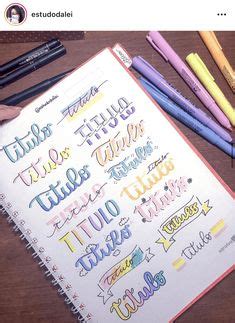 estudodalei
Título
TÍTULO
título
Título
título
Título
Título
Título
título
Título
TÍTULO
Título
Título
Título
título
Título
título